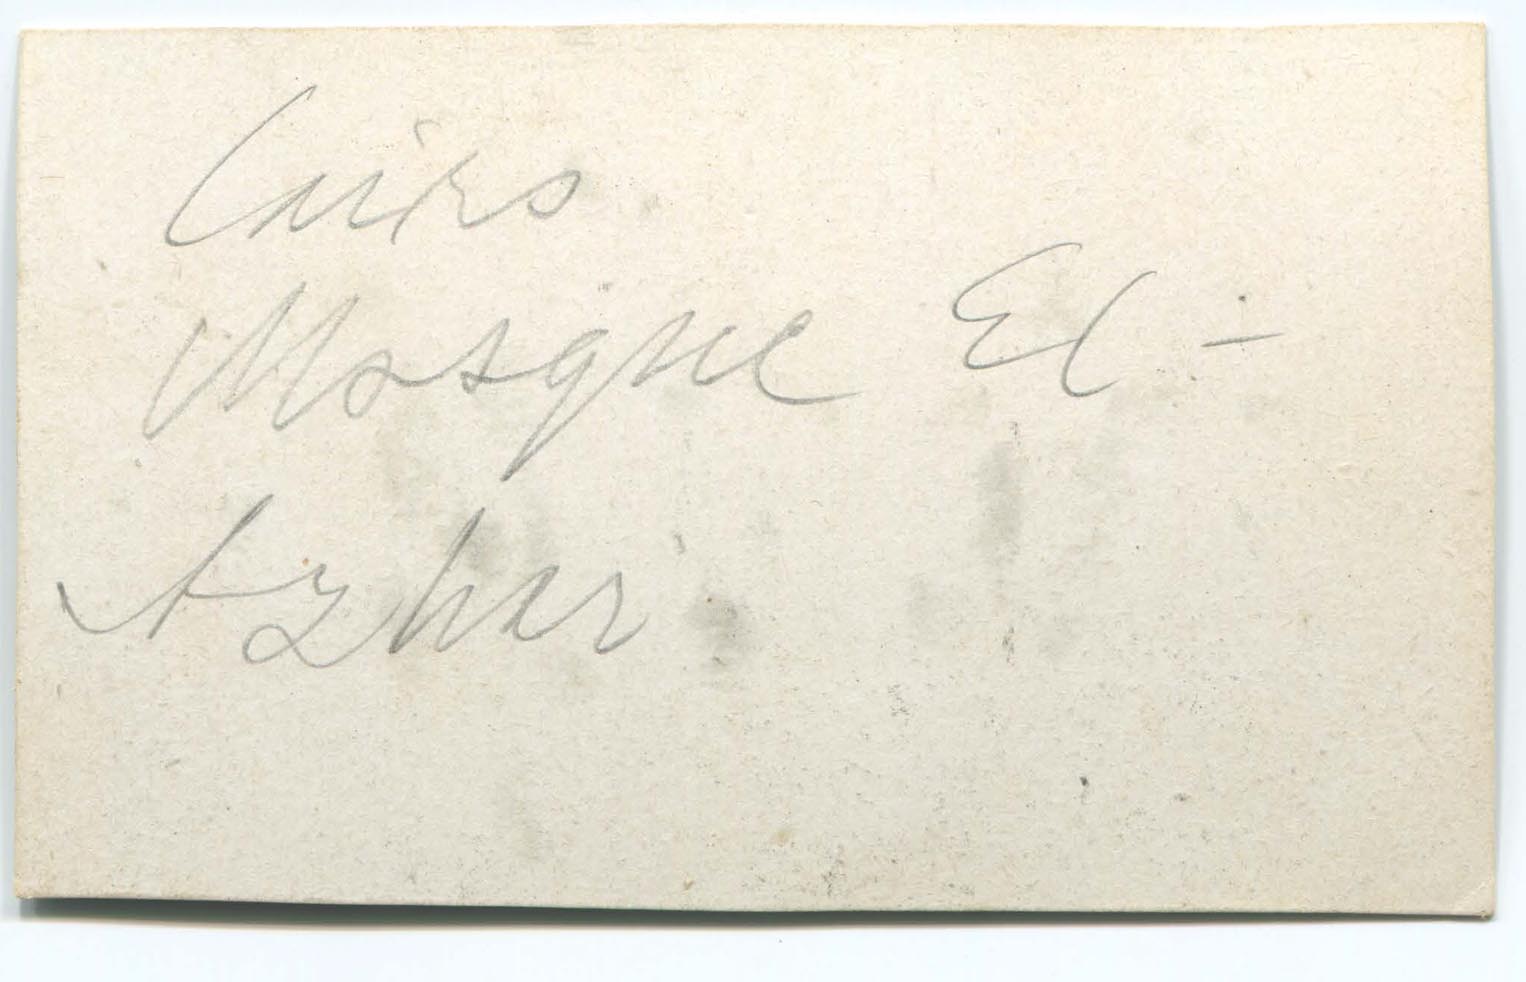 Cairo
Mosque El-
Azhar